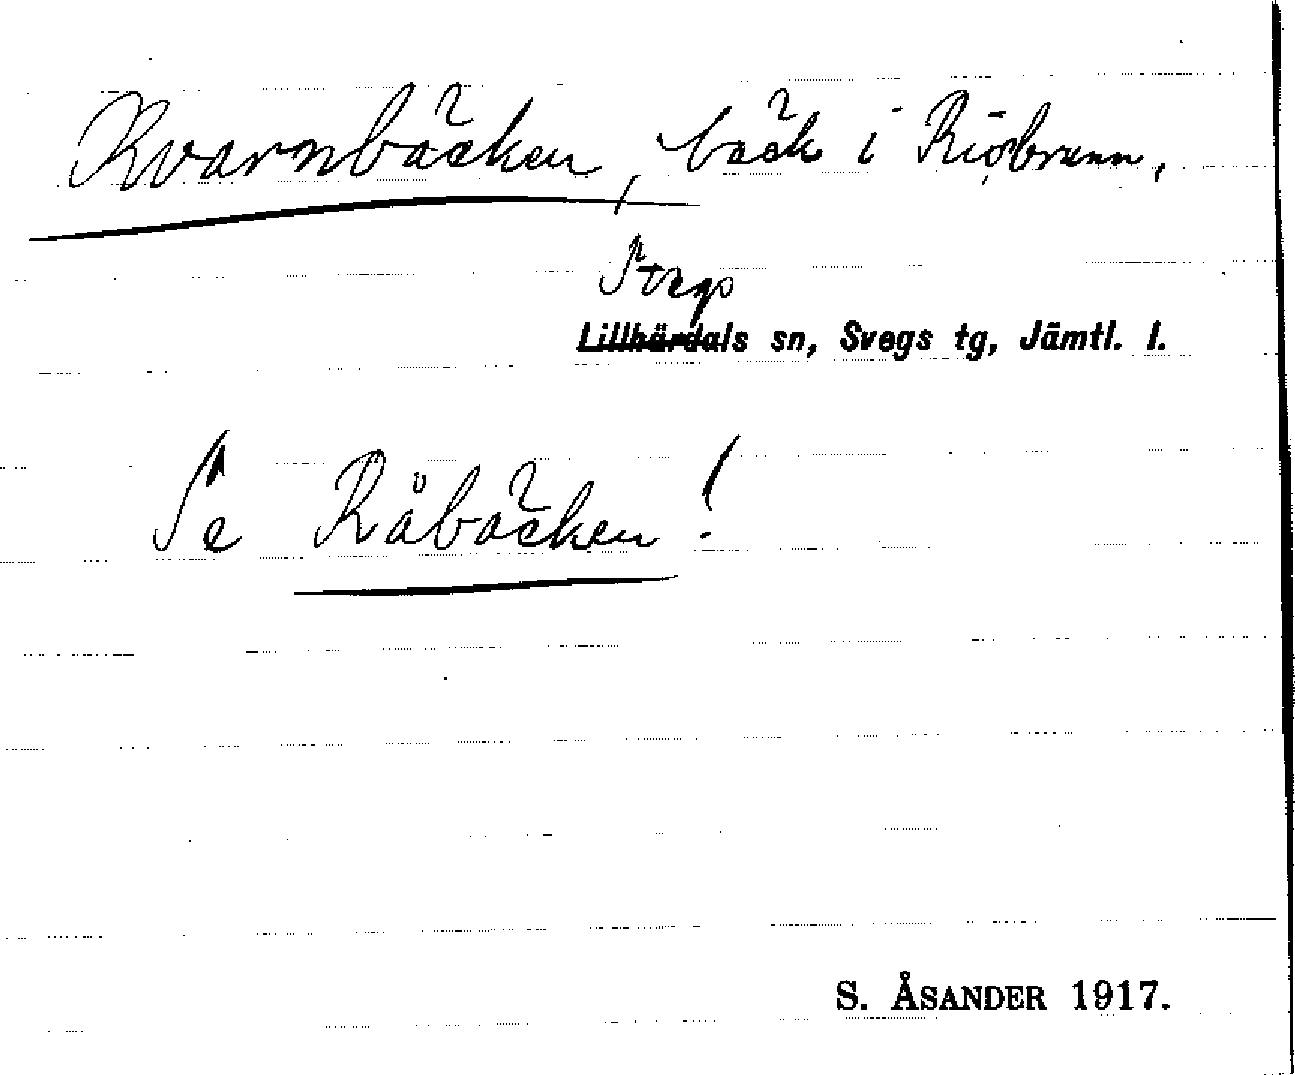 Kvarnbäcken, bäck i Riösbrunn,
Svegs
Lillhärdals sn, Svegs tg, Jämtl. l.
Se Råbäcken!
S. ÅSANDER 1917.